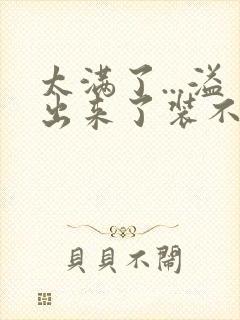 太满了…溢
出来了装不
貝貝不鬧